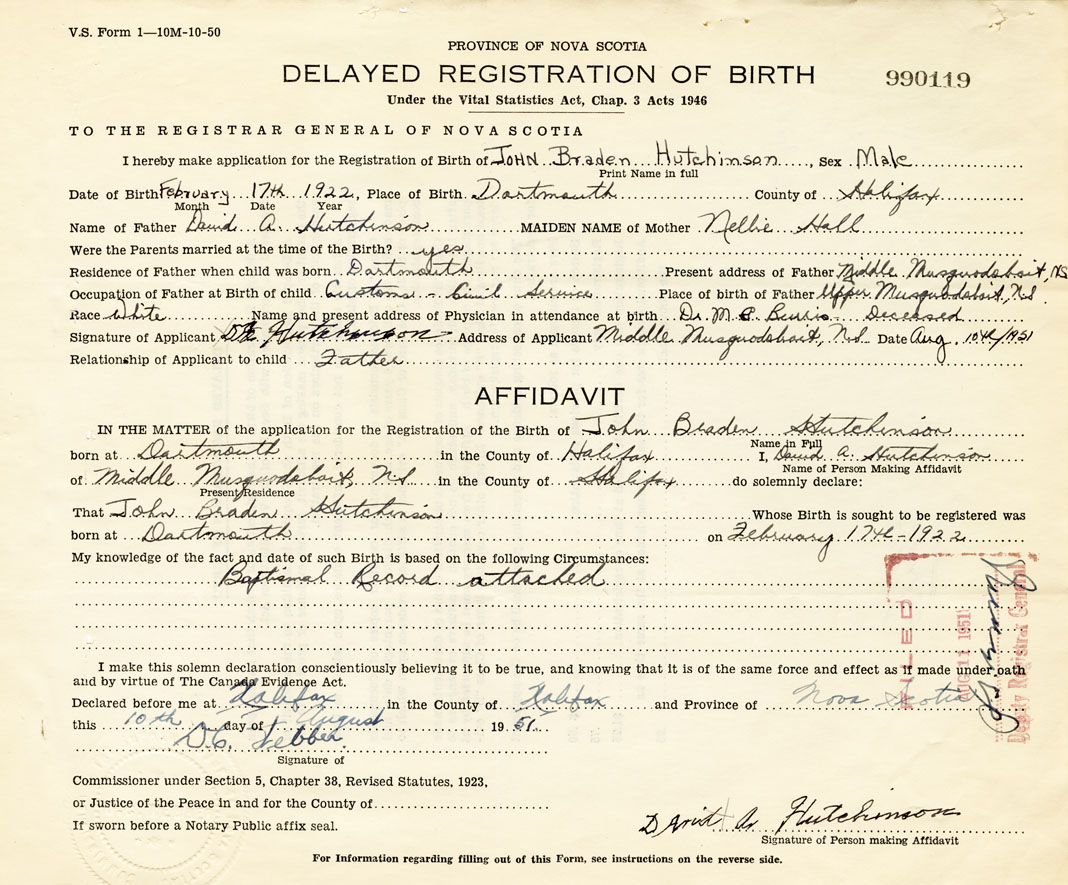 V.S. Form 1—10M-10-50
PROVINCE OF NOVA SCOTIA
DELAYED REGISTRATION OF BIRTH 990119
Under the Vital Statistics Act, Chap. 3 Acts 1946
TO THE REGISTRAR GENERAL OF NOVA SCOTIA
I hereby make application for the Registration of Birth of John Braden Hutchinson, Sex Male
Print Name in full
Date of Birth February 17th 1922, Place of Birth Dartmouth County of Halifax
Month Date Year
Name of Father David A. Hutchinson MAIDEN NAME of Mother Nellie Hall
Were the Parents married at the time of the Birth? yes
Residence of Father when child was born Dartmouth Present address of Father Middle Musquodoboit, NS
Occupation of Father at Birth of child Customs - Civil Service Place of birth of Father Upper Musquodoboit, N.S.
Race White Name and present address of Physician in attendance at birth Dr. M. Burris Deceased
Signature of Applicant Hutchinson Address of Applicant Middle Musquodoboit, N.S. Date Aug. 10th/1951
Relationship of Applicant to child Father
AFFIDAVIT
IN THE MATTER of the application for the Registration of the Birth of John Braden Hutchinson
Name in Full
born at Dartmouth in the County of Halifax I, David A. Hutchinson
Name of Person Making Affidavit
of Middle Musquodoboit, N.S. in the County of Halifax do solemnly declare:
Present Residence
That John Braden Hutchinson Whose Birth is sought to be registered was
born at Dartmouth on February 17th-1922
My knowledge of the fact and date of such Birth is based on the following Circumstances:
Baptismal Record attached
FILED
AUG 11 1951
Deputy Registrar General
I make this solemn declaration conscientiously believing it to be true, and knowing that it is of the same force and effect as if made under oath
and by virtue of The Canada Evidence Act.
Declared before me at Halifax in the County of Halifax and Province of Nova Scotia
this 10th day of August 1951
Signature of
Commissioner under Section 5, Chapter 38, Revised Statutes, 1923,
or Justice of the Peace in and for the County of
If sworn before a Notary Public affix seal.
David A. Hutchinson
Signature of Person making Affidavit
For Information regarding filling out of this Form, see instructions on the reverse side.